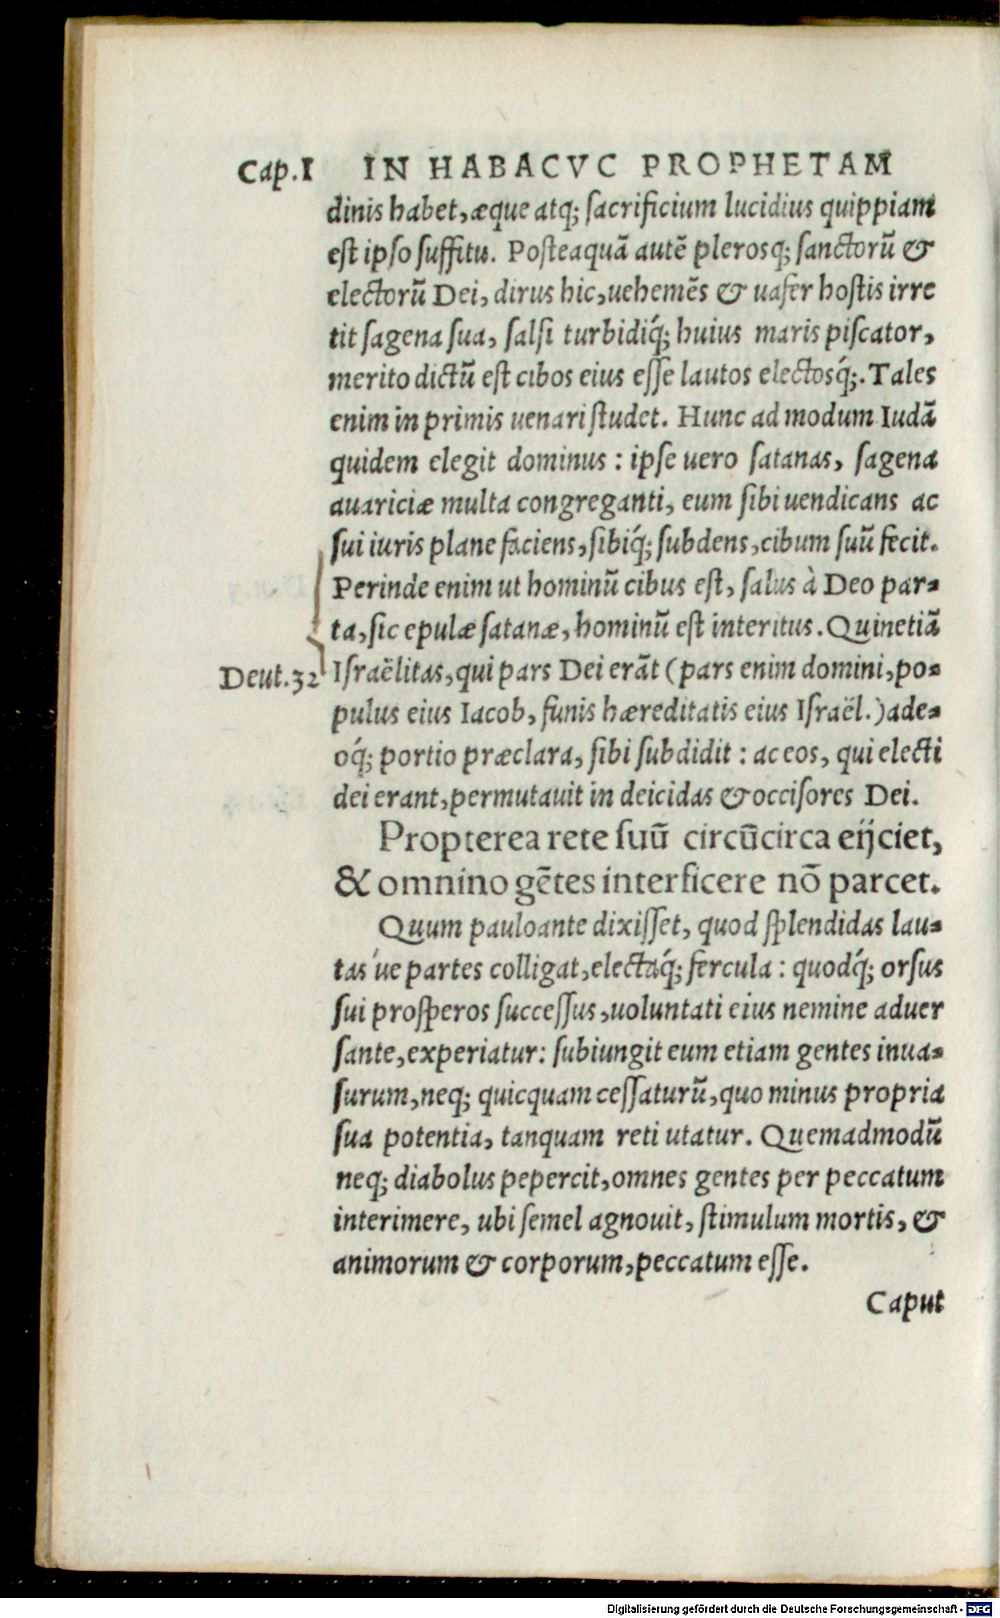 Cap.I IN HABACVC PROPHETAM
dinis habet, æque atq; ſacrificium lucidius quippiam
eſt ipſo ſuffitu. Poſteaquā autē pleroſq; ſanctorū &
electorū Dei, dirus hic, uehemēs & uafer hoſtis irre
tit ſagena ſua, ſalſi turbidiq́; huius maris piſcator,
merito dictū eſt cibos eius eſſe lautos electosq́;. Tales
enim in primis uenari ſtudet. Hunc ad modum Iudā
quidem elegit dominus : ipſe uero ſatanas, ſagena
auariciæ multa congreganti, eum ſibi uendicans ac
ſui iuris plane faciens, ſibiq́; ſubdens, cibum ſuū fecit.
Perinde enim ut hominū cibus eſt, ſalus à Deo par-
ta, ſic epulæ ſatanæ, hominū eſt interitus. Quinetiā
Deut.32 Iſraëlitas, qui pars Dei erāt (pars enim domini, po-
pulus eius Iacob, funis hæreditatis eius Iſraël.) ade-
oq́; portio præclara, ſibi ſubdidit : ac eos, qui electi
dei erant, permutauit in deicidas & occiſores Dei.
Propterea rete ſuū circūcirca eijciet,
& omnino gētes interficere nō parcet.
Quum pauloante dixiſſet, quod ſplendidas lau-
tas'ue partes colligat, electaq́; fercula : quodq́; orſus
ſui proſperos ſucceſſus, uoluntati eius nemine aduer
ſante, experiatur: ſubiungit eum etiam gentes inua-
ſurum, neq; quicquam ceſſaturū, quo minus propria
ſua potentia, tanquam reti utatur. Quemadmodū
neq; diabolus pepercit, omnes gentes per peccatum
interimere, ubi ſemel agnouit, ſtimulum mortis, &
animorum & corporum, peccatum eſſe.
Caput
Digitalisierung gefördert durch die Deutsche Forschungsgemeinschaft - DFG